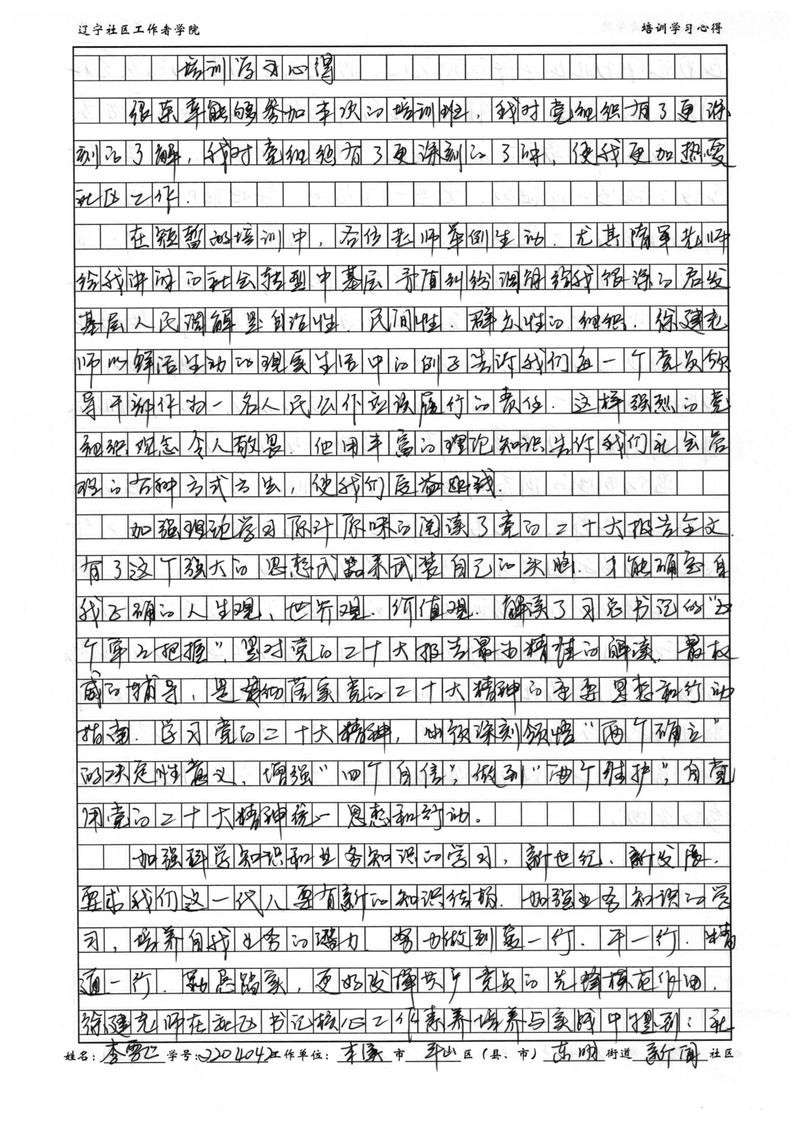 辽宁社区工作者学院 培训学习心得
培训学习心得
很荣幸能够参加本次的培训班，我对党组织有了更深
刻的了解，我对党组织有了更深刻的了解，使我更加热爱
社区工作.
在短暂的培训中，各位老师举例生动.尤其隋军老师
给我讲解的社会转型中基层矛盾纠纷调解给我很深的启发
基层人民调解是自治性.民间性.群众性的组织.徐建老
师以鲜活生动的现实生活中的例子告诉我们每一个党员领
导干部作为一名人民公仆应该履行的责任.这样强烈的党
组织观念令人敬畏.他用丰富的理论知识告诉我们社会管
理的各种方式方法，使我们受益匪浅.
加强理论学习原汁原味的阅读了党的二十大报告全文.
有了这个强大的思想武器来武装自己的头脑.才能确定自
我正确的人生观、世界观.价值观.解读了习总书记的“五
个牢牢把握”，是对党的二十大报告最为精准的解读、最权
威的辅导，是贯彻落实党的二十大精神的重要思想和行动
指南.学习党的二十大精神，必须深刻领悟“两个确立”
的决定性意义，增强“四个自信”，做到“两个维护”，自觉
用党的二十大精神统一思想和行动。
加强科学知识和业务知识的学习，新世纪、新发展.
要求我们这一代人要有新的知识结构.加强业务知识的学
习，培养自我业务的潜力.努力做到爱一行.干一行.精
通一行.勤恳踏实，更好发挥共产党员的先锋模范作用.
徐建老师在社区书记核心工作素养培养与实践中提到：社
姓名：李雪 学号：2204042 工作单位：本溪 市 平山 区（县、市） 东明 街道 新闻 社区